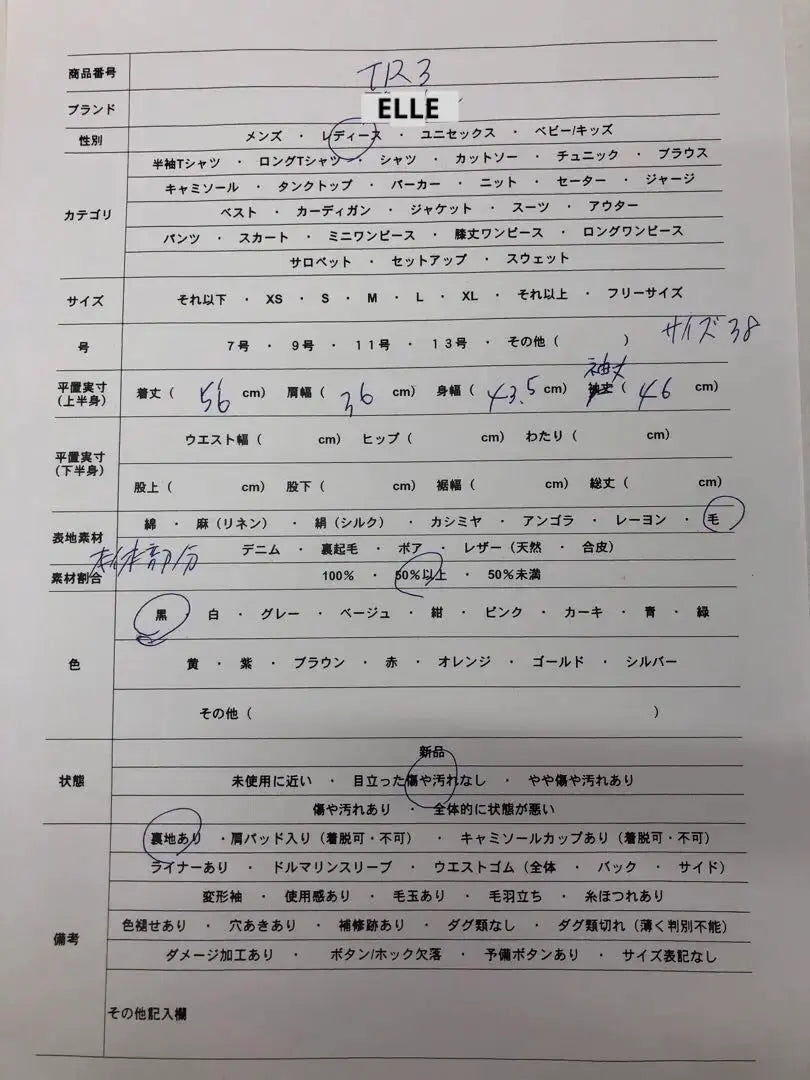 商品番号 TR3
ブランド ELLE
性別 メンズ ・ レディース ・ ユニセックス ・ ベビー/キッズ
カテゴリ
半袖Tシャツ ・ ロングTシャツ ・ シャツ ・ カットソー ・ チュニック ・ ブラウス
キャミソール ・ タンクトップ ・ パーカー ・ ニット ・ セーター ・ ジャージ
ベスト ・ カーディガン ・ ジャケット ・ スーツ ・ アウター
パンツ ・ スカート ・ ミニワンピース ・ 膝丈ワンピース ・ ロングワンピース
サロペット ・ セットアップ ・ スウェット
サイズ それ以下 ・ XS ・ S ・ M ・ L ・ XL ・ それ以上 ・ フリーサイズ
号 7号 ・ 9号 ・ 11号 ・ 13号 ・ その他 ( ) サイズ38
袖丈
平置実寸
(上半身)
着丈 ( 56 cm) 肩幅 ( 36 cm) 身幅 ( 43.5 cm) ( 46 cm)
平置実寸
(下半身)
ウエスト幅 ( cm) ヒップ ( cm) わたり ( cm)
股上 ( cm) 股下 ( cm) 裾幅 ( cm) 総丈 ( cm)
表地素材
綿 ・ 麻 (リネン) ・ 絹 (シルク) ・ カシミヤ ・ アンゴラ ・ レーヨン ・ 毛
デニム ・ 裏起毛 ・ ボア ・ レザー (天然 ・ 合皮)
本体部分
素材割合 100% ・ 50%以上 ・ 50%未満
色
黒 ・ 白 ・ グレー ・ ベージュ ・ 紺 ・ ピンク ・ カーキ ・ 青 ・ 緑
黄 ・ 紫 ・ ブラウン ・ 赤 ・ オレンジ ・ ゴールド ・ シルバー
その他 ( )
状態
新品
未使用に近い ・ 目立った傷や汚れなし ・ やや傷や汚れあり
傷や汚れあり ・ 全体的に状態が悪い
備考
裏地あり ・肩パッド入り (着脱可・不可) ・ キャミソールカップあり (着脱可・不可)
ライナーあり ・ ドルマリンスリーブ ・ ウエストゴム (全体 ・ バック ・ サイド)
変形袖 ・ 使用感あり ・ 毛玉あり ・ 毛羽立ち ・ 糸ほつれあり
色褪せあり ・ 穴あきあり ・ 補修跡あり ・ ダグ類なし ・ ダグ類切れ (薄く判別不能)
ダメージ加工あり ・ ボタン/ホック欠落 ・ 予備ボタンあり ・ サイズ表記なし
その他記入欄